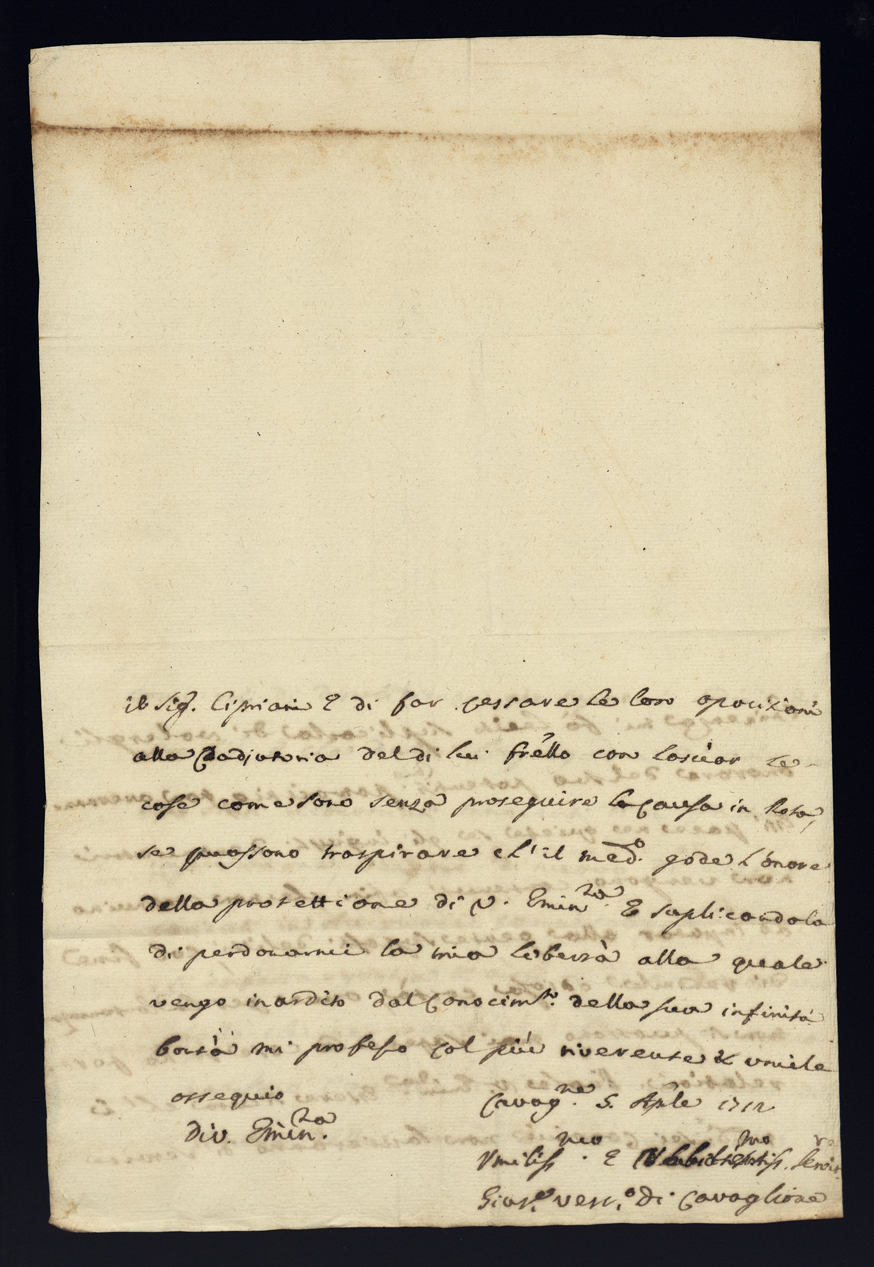 il Sig.r Cipriani E di far cessare le loro opocixioni
alla Coadjutoria del di lui fr̃ello con lasciar le
cose come sono senza proseguire la causa in Rota,
se puossono traspirare ch'il med.o gode l'onore
della protettione di V. Emin.za E suplicandola
di perdonarmi la mia libertà alla quale
vengo inardito dal Conocim.to della sua infinita
bontà mi professo col più riverente & umile
ossequio
Di V. Emin.za
Cavag.ne 5. Aple 1712
Umiliss.mo E Serv.re
Gius.e Vesc.o di Cavaglione